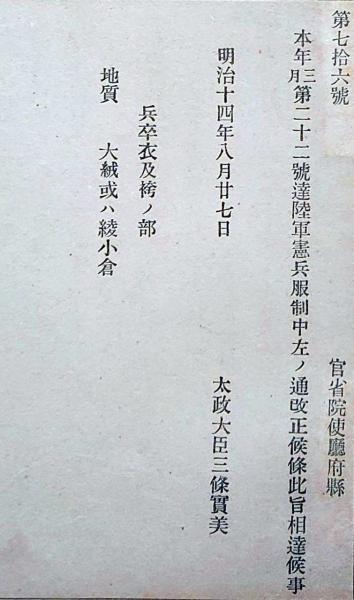 第七拾六號
官省院使廳府縣
本年三月第二十二號達陸軍憲兵服制中左ノ通改正候條此旨相達候事
明治十四年八月廿七日
太政大臣三條實美
兵卒衣及袴ノ部
地質　大絨或ハ綾小倉